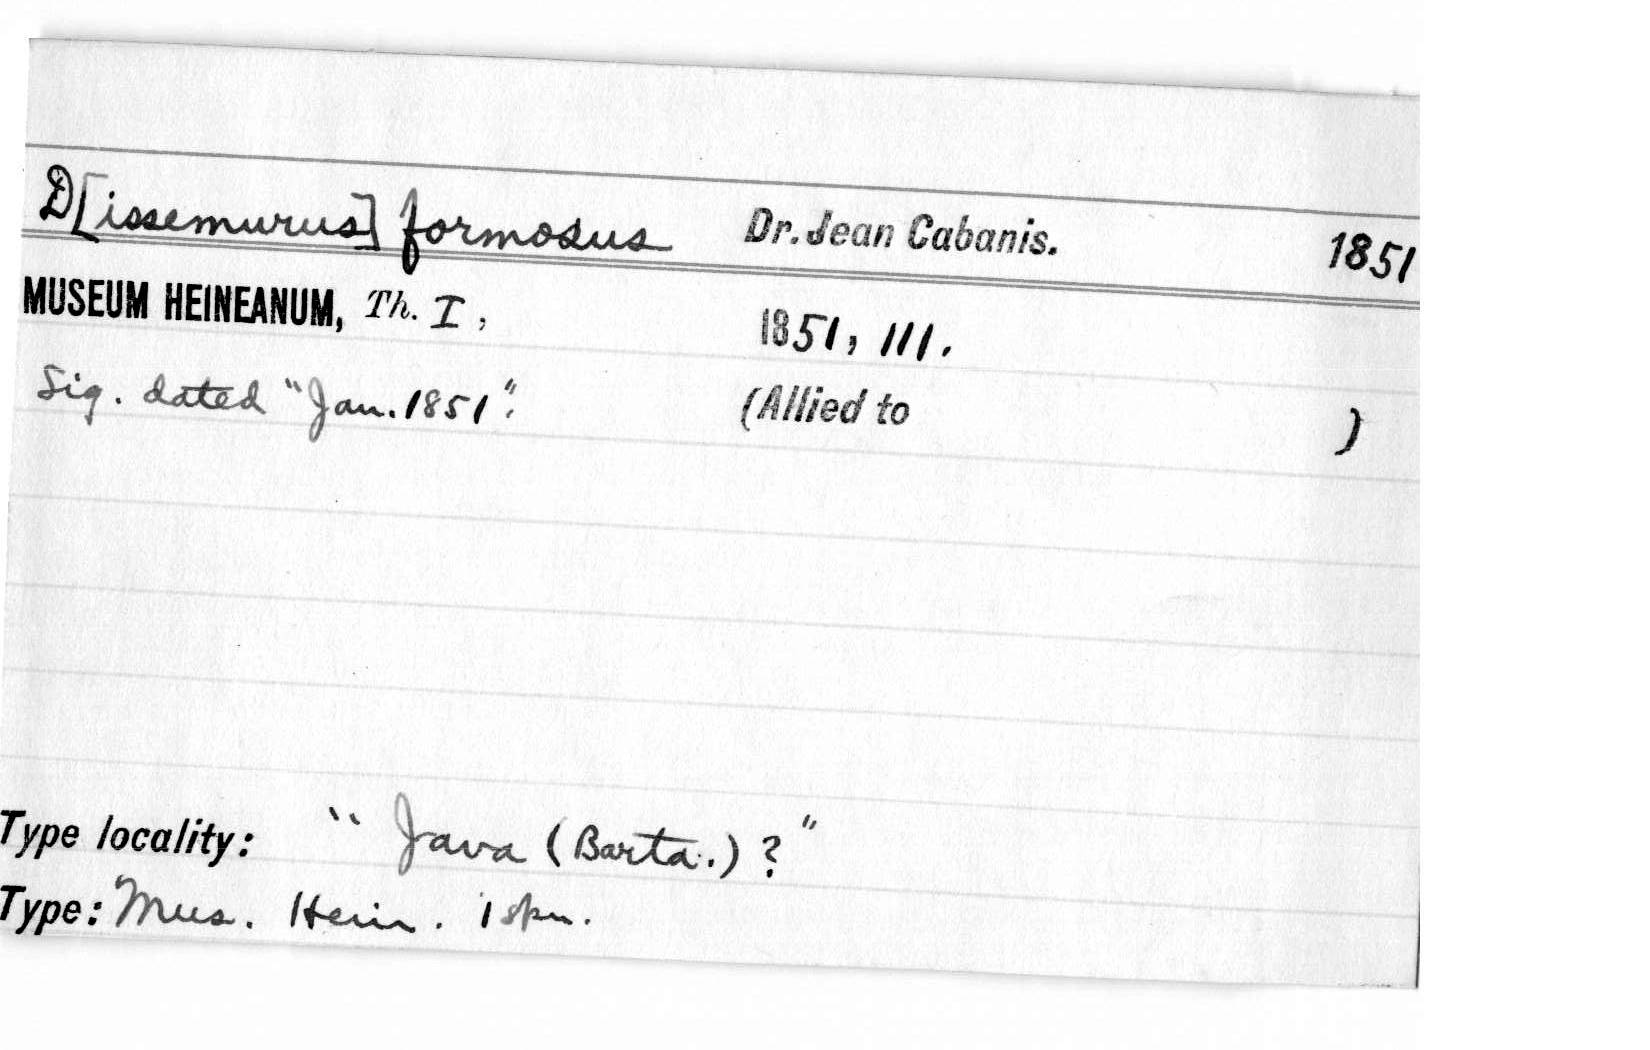 D[issemurus] formosus Dr. Jean Cabanis. 1851
MUSEUM HEINEANUM, Th. I, 1851, 111.
Sig. dated "Jan. 1851". (Allied to )
Type locality: "Java (Barta.) ?"
Type: Mus. Hein. 1 spn.